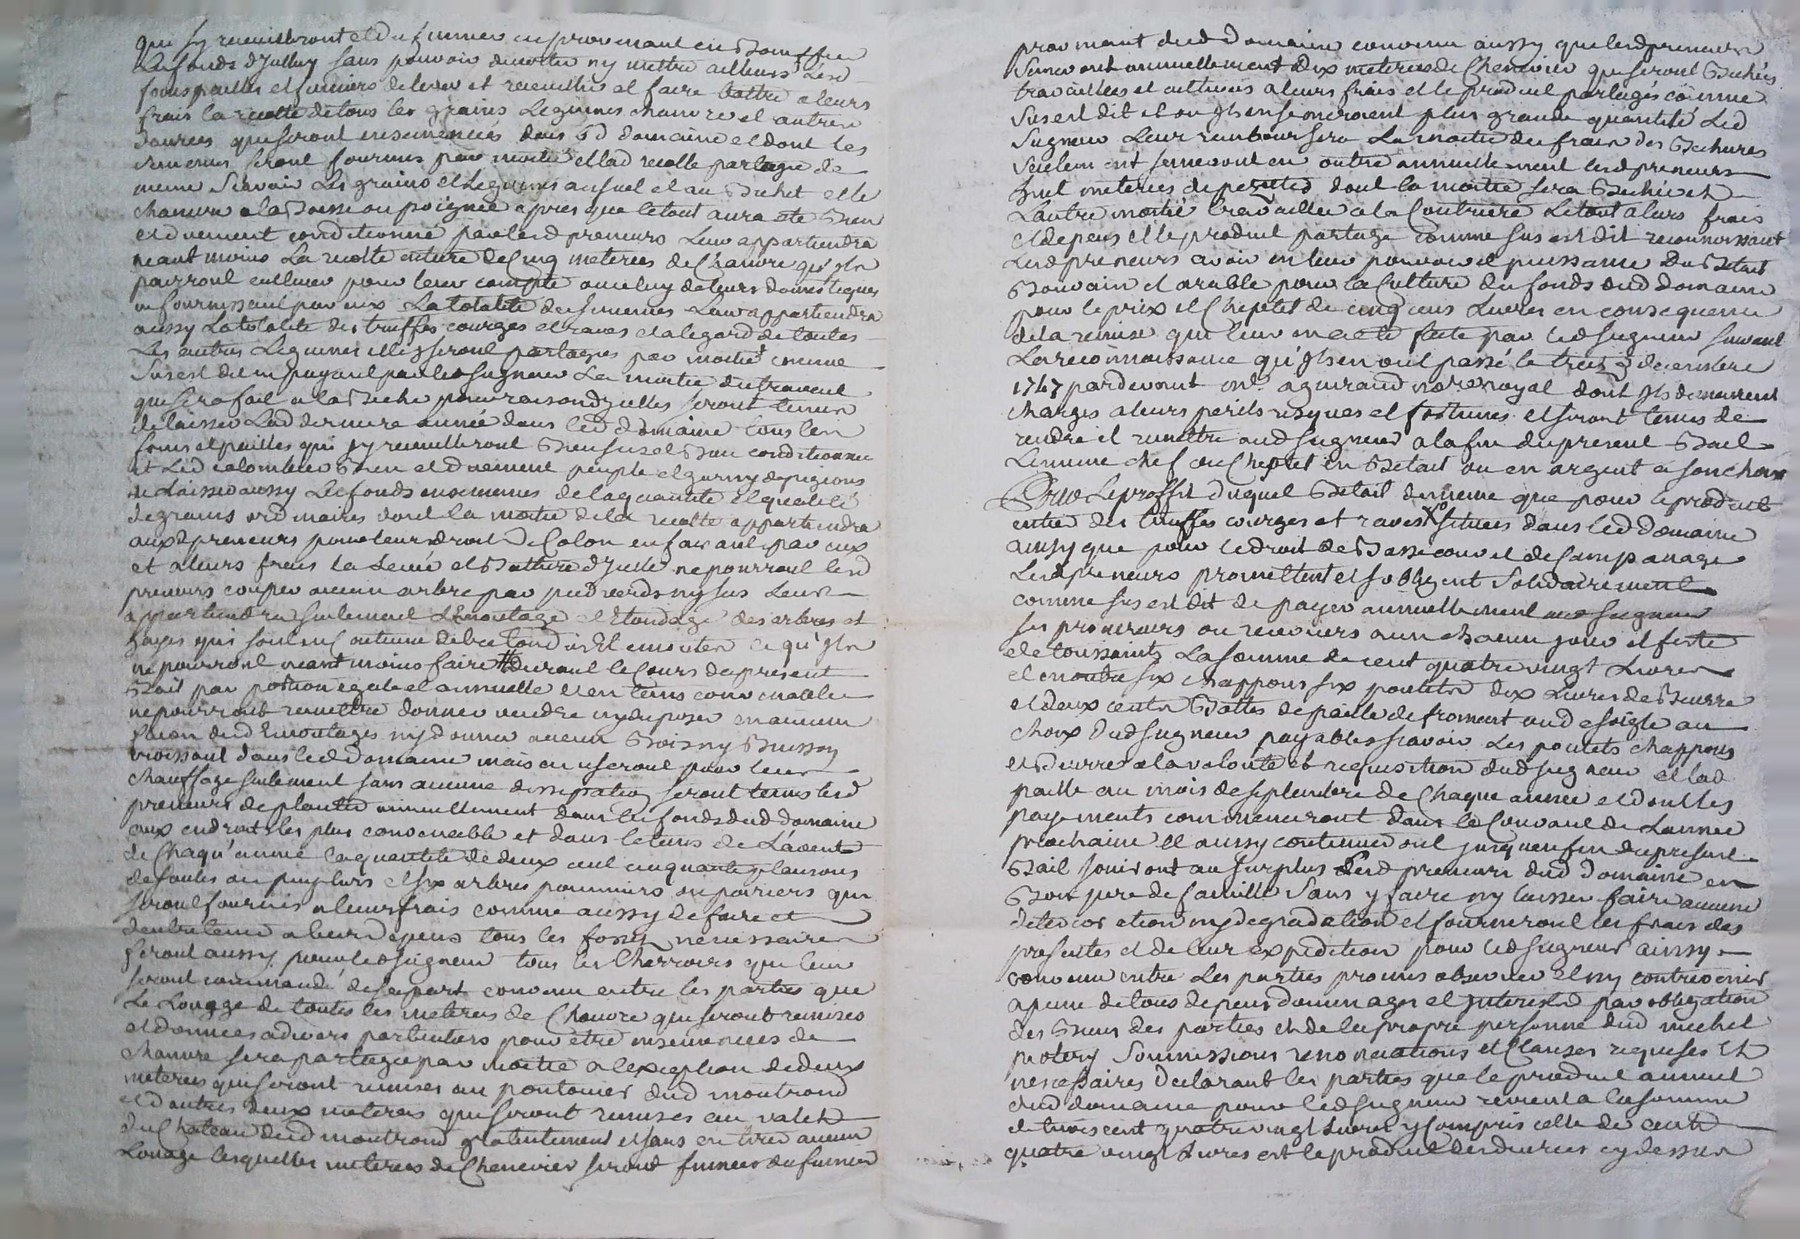 que sy recueilliront et du fumier en provenant en
les fonds d'Jceluy sans pouvoir divertir ny mettre ailleurs lesd
foins pailles et fumiers de lever et recueillir et faire battre a leurs
frais la recolte de tous les grains Legumes chanvre et autres
danrees qui seront ensemencés dans led domaine et dont les
semences seront fournies par moitié et lad recolte partagée de
meme Scavoir Les grains et Legumes au et au Bichet et le
chanvre a la Masse ou poignée apres que le tout aura eté Bien
et duement conditionné par lesd preneurs Leur appartiendra
neant moins La recolte entiere de Cinq meterées de Chanvre qu'Jls
pourront cultiver pour leur compte ou celuy de leurs domestiques
en fournissant par eux La totalité des semences Leur appartiendra
aussy La totalité des truffes courges et raves et a legard de toutes
Les autres Legumes elles seront partagées par moitié comme
Sus est dit en payant par led seigneur La moitié du travail
qui sera fait a la Beche pour raison d'Jcelles seront tenus
de laisser Lad derniere année dans led domaine tous les
foins et pailles qui sy recueilleront Bien conditionnés
et Led colombier Bien et duement peuplé et garny de pigeons
de Laisser aussy Les fonds ensemencés de la quantité et qualité
de grains ordinaires dont la moitié de la recolte appartiendra
auxd preneurs pour leur droit De Colon en faisant par eux
et a leurs frais la Levée et Batture d'Jcelle ne pourront lesd
preneurs couper aucun arbre par pied verds ny secs Leur
appartiendra seulement Lemontage et Etondage des arbres et
hayes qui sont en Coutume detre tondus Et emontés ce qu'Jls
ne pourront neant moins faire # durant le Cours du present
Bail par portion egale et annuelle et en tems convenable
ne pourront remettre donner vendre ny disposer en aucune
facon dud Emontages ny donner aucun Bois ny Buisson
croissant dans led domaine mais en useront pour leur
chauffage seulement sans aucune dissipation seront tenus lesd
preneurs de planter annuellement dans les fonds dud domaine
aux endroits les plus convenable et dans le tems de Lavent
de Chaqu'année la quantité de deux cent cinquante plansons
de saules ou peupliers et six arbres pommiers ou poiriers qui
seront fournis a leurs frais comme aussy de faire et
d'entretenir a leurs depens tous les fossés necessaires
feront aussy pour led seigneur tous les Charrois qui leur
seront commandé de sa part convenu entre les parties que
Le Louage de toutes les meterées de Chanvre qui seront remises
et données a divers particuliers pour être ensemencées de
chanvre sera partagé par moitié a lexception de deux
meterées qui seront remises au pontonier dud montrond
et d'autres deux meterées qui seront remises au valet
du Chateau dud montrond gratuitement et sans en tirer aucun
Louage lesquelles meterées de Chenevier seront fumées du fumier
provenant dud domaine convenu aussy que lesd preneurs
semeront annuellement dix meterées de Chenevier qui seront Bechées
travaillées et cultivées a leurs frais et le produit partagés comme
Sus est dit et ou Jls ensemenceroient plus grande quantité Led
Seigneur Leur remboursera La moitié des frais des Bechures
Seulement semeront en outre annuellement lesd preneurs
huit meterées de dont la moitié sera Bechée et
Lautre moitié travaillée a la Coutriere Le tout a leurs frais
et depens et le produit partagé comme sus est dit reconnoissant
Lesd preneurs avoir en leur pouvoir et puissance Du Betail
Bouvain et arable pour la Culture des fonds dud domaine
pour le prix et Cheptel de cinq cens Livres en consequence
de la remise qui leur en a eté faite par led seigneur suivant
La reconnoissance qu'Jls en ont passé le treize decembre
1747 pardevant me aguiraud notre royal dont Jls demeurent
chargés a leurs perils risques et fortunes et seront tenus de
rendre et remettre aud seigneur a la fin du present Bail
Le meme chef ou Cheptel en Betail ou en argent a son choix
Pour Le proffit duquel Betail de meme que pour le produit
entier des truffes courges et raves situées dans led domaine
ainsy que pour le droit de Basse cour et de Campanage
Lesd preneurs promettent et s'obligent Solidairement
comme sus est dit de payer annuellement aud seigneur
ses procureurs ou receveurs a un chacun jour et feste
de toussaints La somme de cent quatre vingt Livres
et en outre six chappons six poulets dix Livres de Beurre
et deux cents Bottes de paille de froment ou de seigle au
choix Dud seigneur payables scavoir Les poulets chappons
et Beurre a la volonté et requisition dud seigneur et lad
paille au mois de septembre de Chaque année et dont les
payements commenceront dans le Courant de Lannée
prochaine et aussy continueront jusqu'en fin du present
Bail jouiront au surplus Lesd preneurs dud domaine en
Bon pere de famille Sans y faire ny laisser faire aucune
deterioration ny degradation et fourniront les frais des
presentes et de leur expedition pour led seigneur ainsy
convenu entre Les parties promis observer et ny contrevenir
a peine de tous depens dommages et Jnterests par obligation
des Biens des parties et de la propre personne dud michel
Soumissions renonciations et Clauses requises Et
necessaires Declarant les parties que le produit annuel
dud domaine pour led seigneur revient a la somme
de trois cent quatre vingt Livres y Compris celle de cent
quatre vingt Livres est le produit des danrees cy dessus